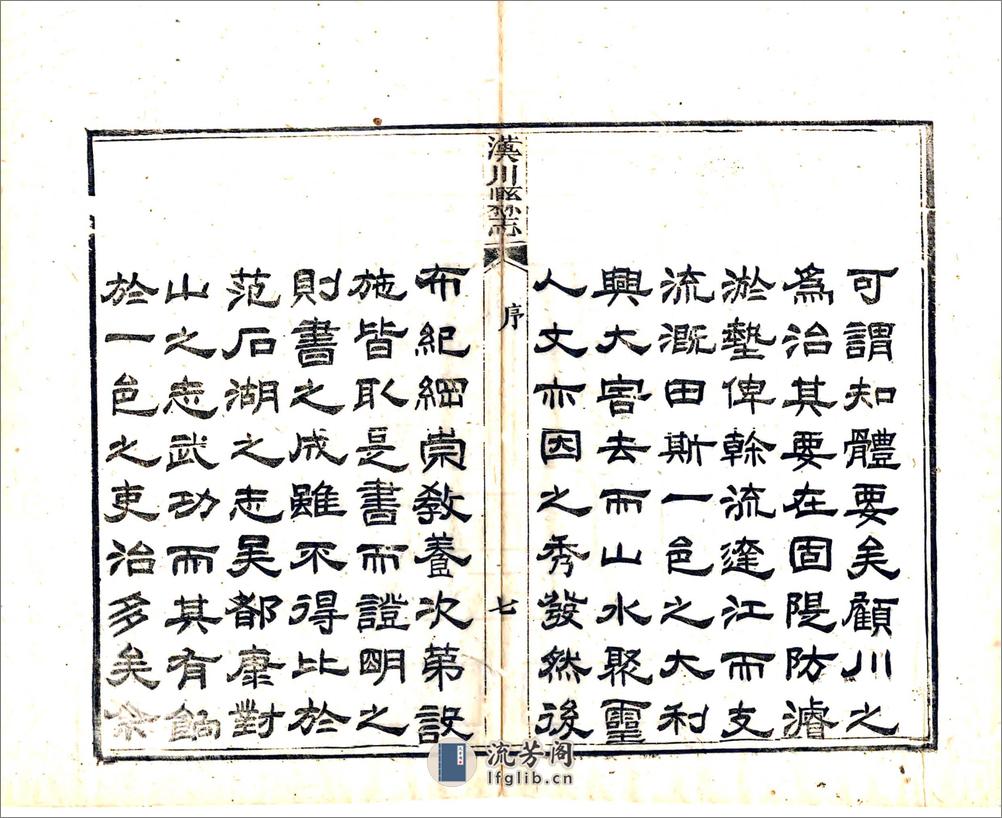 可謂知體要矣顧川之
爲治其要在固隄防濬
淤墊俾幹流達江而支
流溉田斯一邑之大利
興大害去而山水聚靈
人文亦因之秀發然後
漢川縣志
序
七
布紀綱崇敎養次第設
施皆取是書而證明之
則書之成雖不得比於
范石湖之志吳郡康對
山之志武功而其有飭
於一邑之吏治多矣余
流芳阁
lfglib.cn